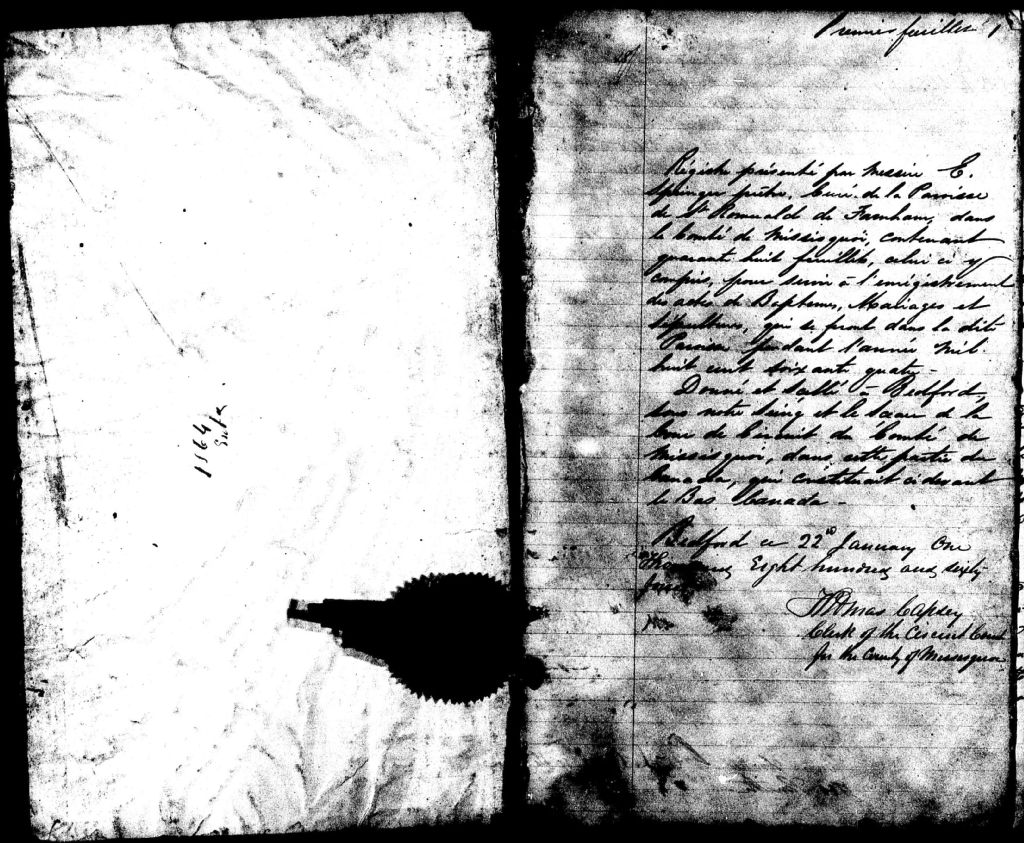 1864
Premier feuillet
Régistre présenté par Messire E.
Springer prêtre, Curé de la Paroisse
de St Romuald de Farnham, dans
le Comté de Missisquoi, contenant
quarante huit feuillets, celui ci y
compris, pour servir à l'enrégistrement
des actes de Baptêmes, Mariages et
Sépultures, qui se feront dans la dite
Paroisse pendant l'année mil
huit cent soixante quatre -
Donné et scellé à Bedford,
sous notre seing et le sceau de la
Cour de Circuit du Comté de
Missisquoi, dans cette partie du
Canada, qui constituait ci devant
le Bas Canada -
Bedford ce 22nd January One
Thousand Eight hundred and sixty
four
Thomas Capsey
Clerk of the Circuit Court
for the County of Missisquoi